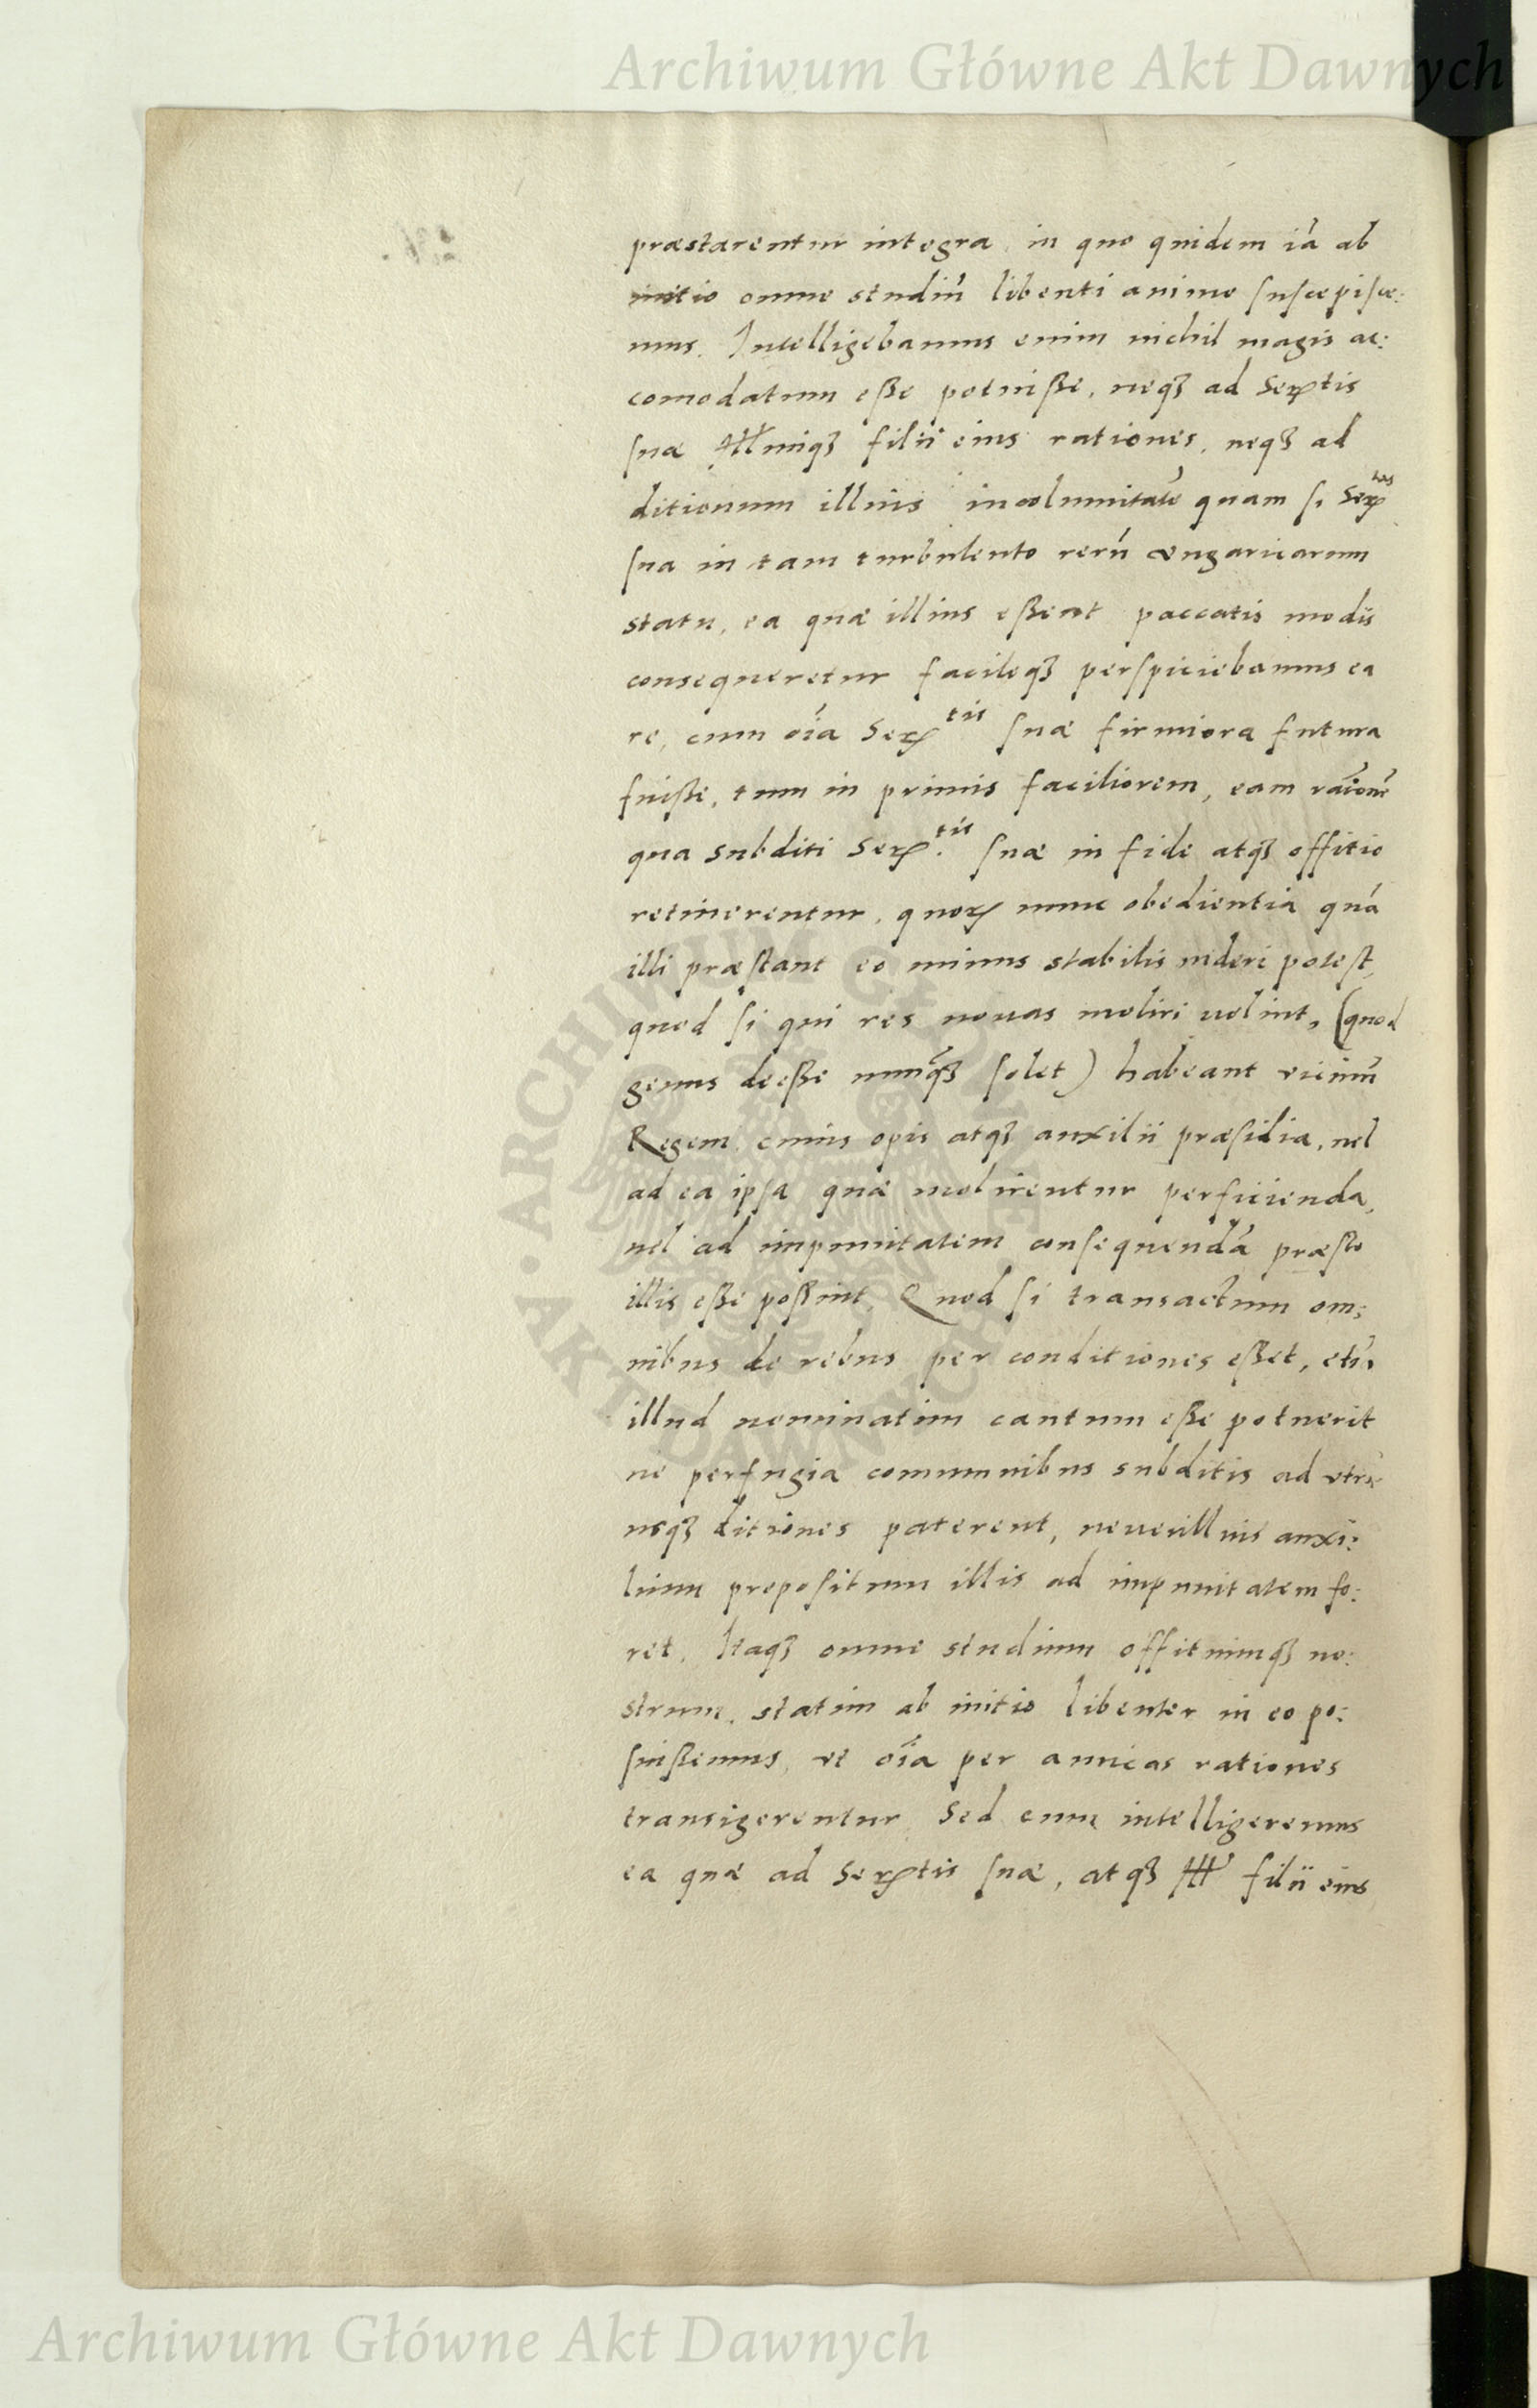 Archiwum Główne Akt Dawnych
præstarentur integra. in quo quidem iā ab
initio omne studiū libenti animo suscepisse:
mus. Intelligebamus enim nichil magis ac:
comodatum eße potuiße, neqꝫ ad Serꝫtis
suæ Illmiqꝫ filii eius rationes, neqꝫ ad
ditionum illius incolumitatē quam si Serꝫ tas
sua in tam turbulento rerū ungaricarum
statu, ea quæ illius eßent paccatis modis
consequeretur facileqꝫ perspiciebamus ea
re, cum oīa Serꝫ tis suæ firmiora futura
fuiße, tum in primis faciliorem, eam raīonē
qua subditi Serꝫ. tis suæ in fide atqꝫ offitio
retinerentur, quoꝝ nunc obedientia quā
illi præstant eo minus stabilis uideri potest,
quod si qui res nouas moliri uelint, (quod
genus deeße nunqꝫ solet) habeant vicinū
Regem cuius opis atqꝫ auxilii præsidia, uel
ad ea ipsa quæ molirentur perficienda,
uel ad impunitatem consequendā præsto
illis eße poßint, Quod si transactum om:
nibus de rebus per conditiones eßet, etiā
illud nominatim cautum eße potuerit
ne perfugia comunibus subditis ad utri
usqꝫ ditiones paterent, neue illius auxi:
lium propositum illis ad impunitatem fo:
ret. Itaqꝫ omne studium offitiumqꝫ no:
strum, statim ab initio libenter in eo po:
suißemus, ut oīa per amicas rationes
transigerentur. Sed cum intelligeremus
ea quæ ad Serꝫtis suæ, atqꝫ Ill filii eius
ARCHIWUM GŁÓWNE AKT DAWNYCH
Archiwum Główne Akt Dawnych